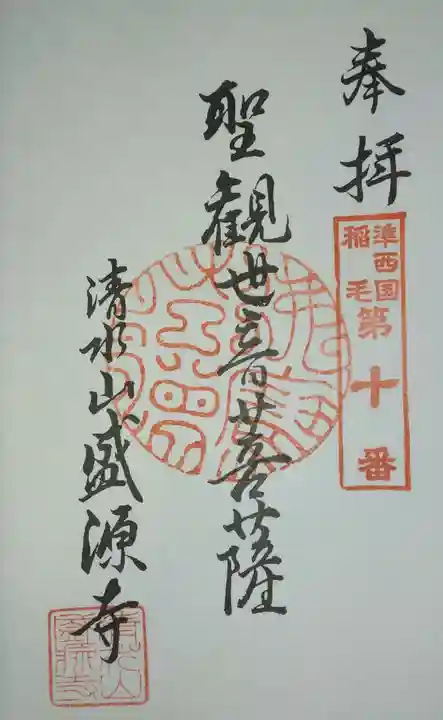 奉拝
準西国
稲毛
第十番
聖觀世音菩薩
清水山盛源寺